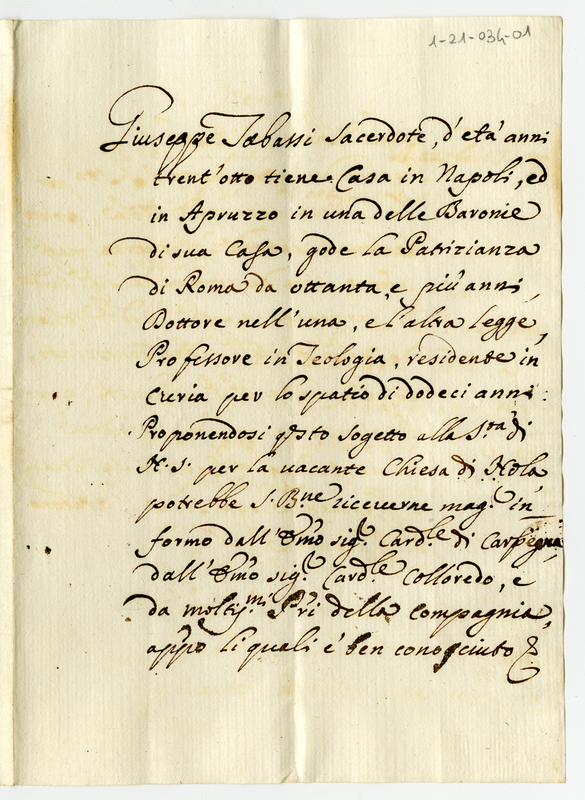 1-21-034-01
Giuseppe Tabassi Sacerdote, d'età anni
trent'otto tiene Casa in Napoli, ed
in Apruzzo in una delle Baronie
di sua Casa, gode la Patrizianza
di Roma da ottanta, e più anni,
Dottore nell'una, e l'altra legge,
Professore in Teologia, residente in
Curia per lo spatio di dodeci anni:
Proponendosi qsto sogetto alla S.tà di
N. S. per la vacante Chiesa di Nola
potrebbe S. B.ne riceverne mag.r in
formo dall'Emo sig.r Card.le di Carpegna
dall'Emo sig.r Card.le Colloredo, e
da moltiss.mi Pri della Compagnia,
appo li quali è ben conosciuto &